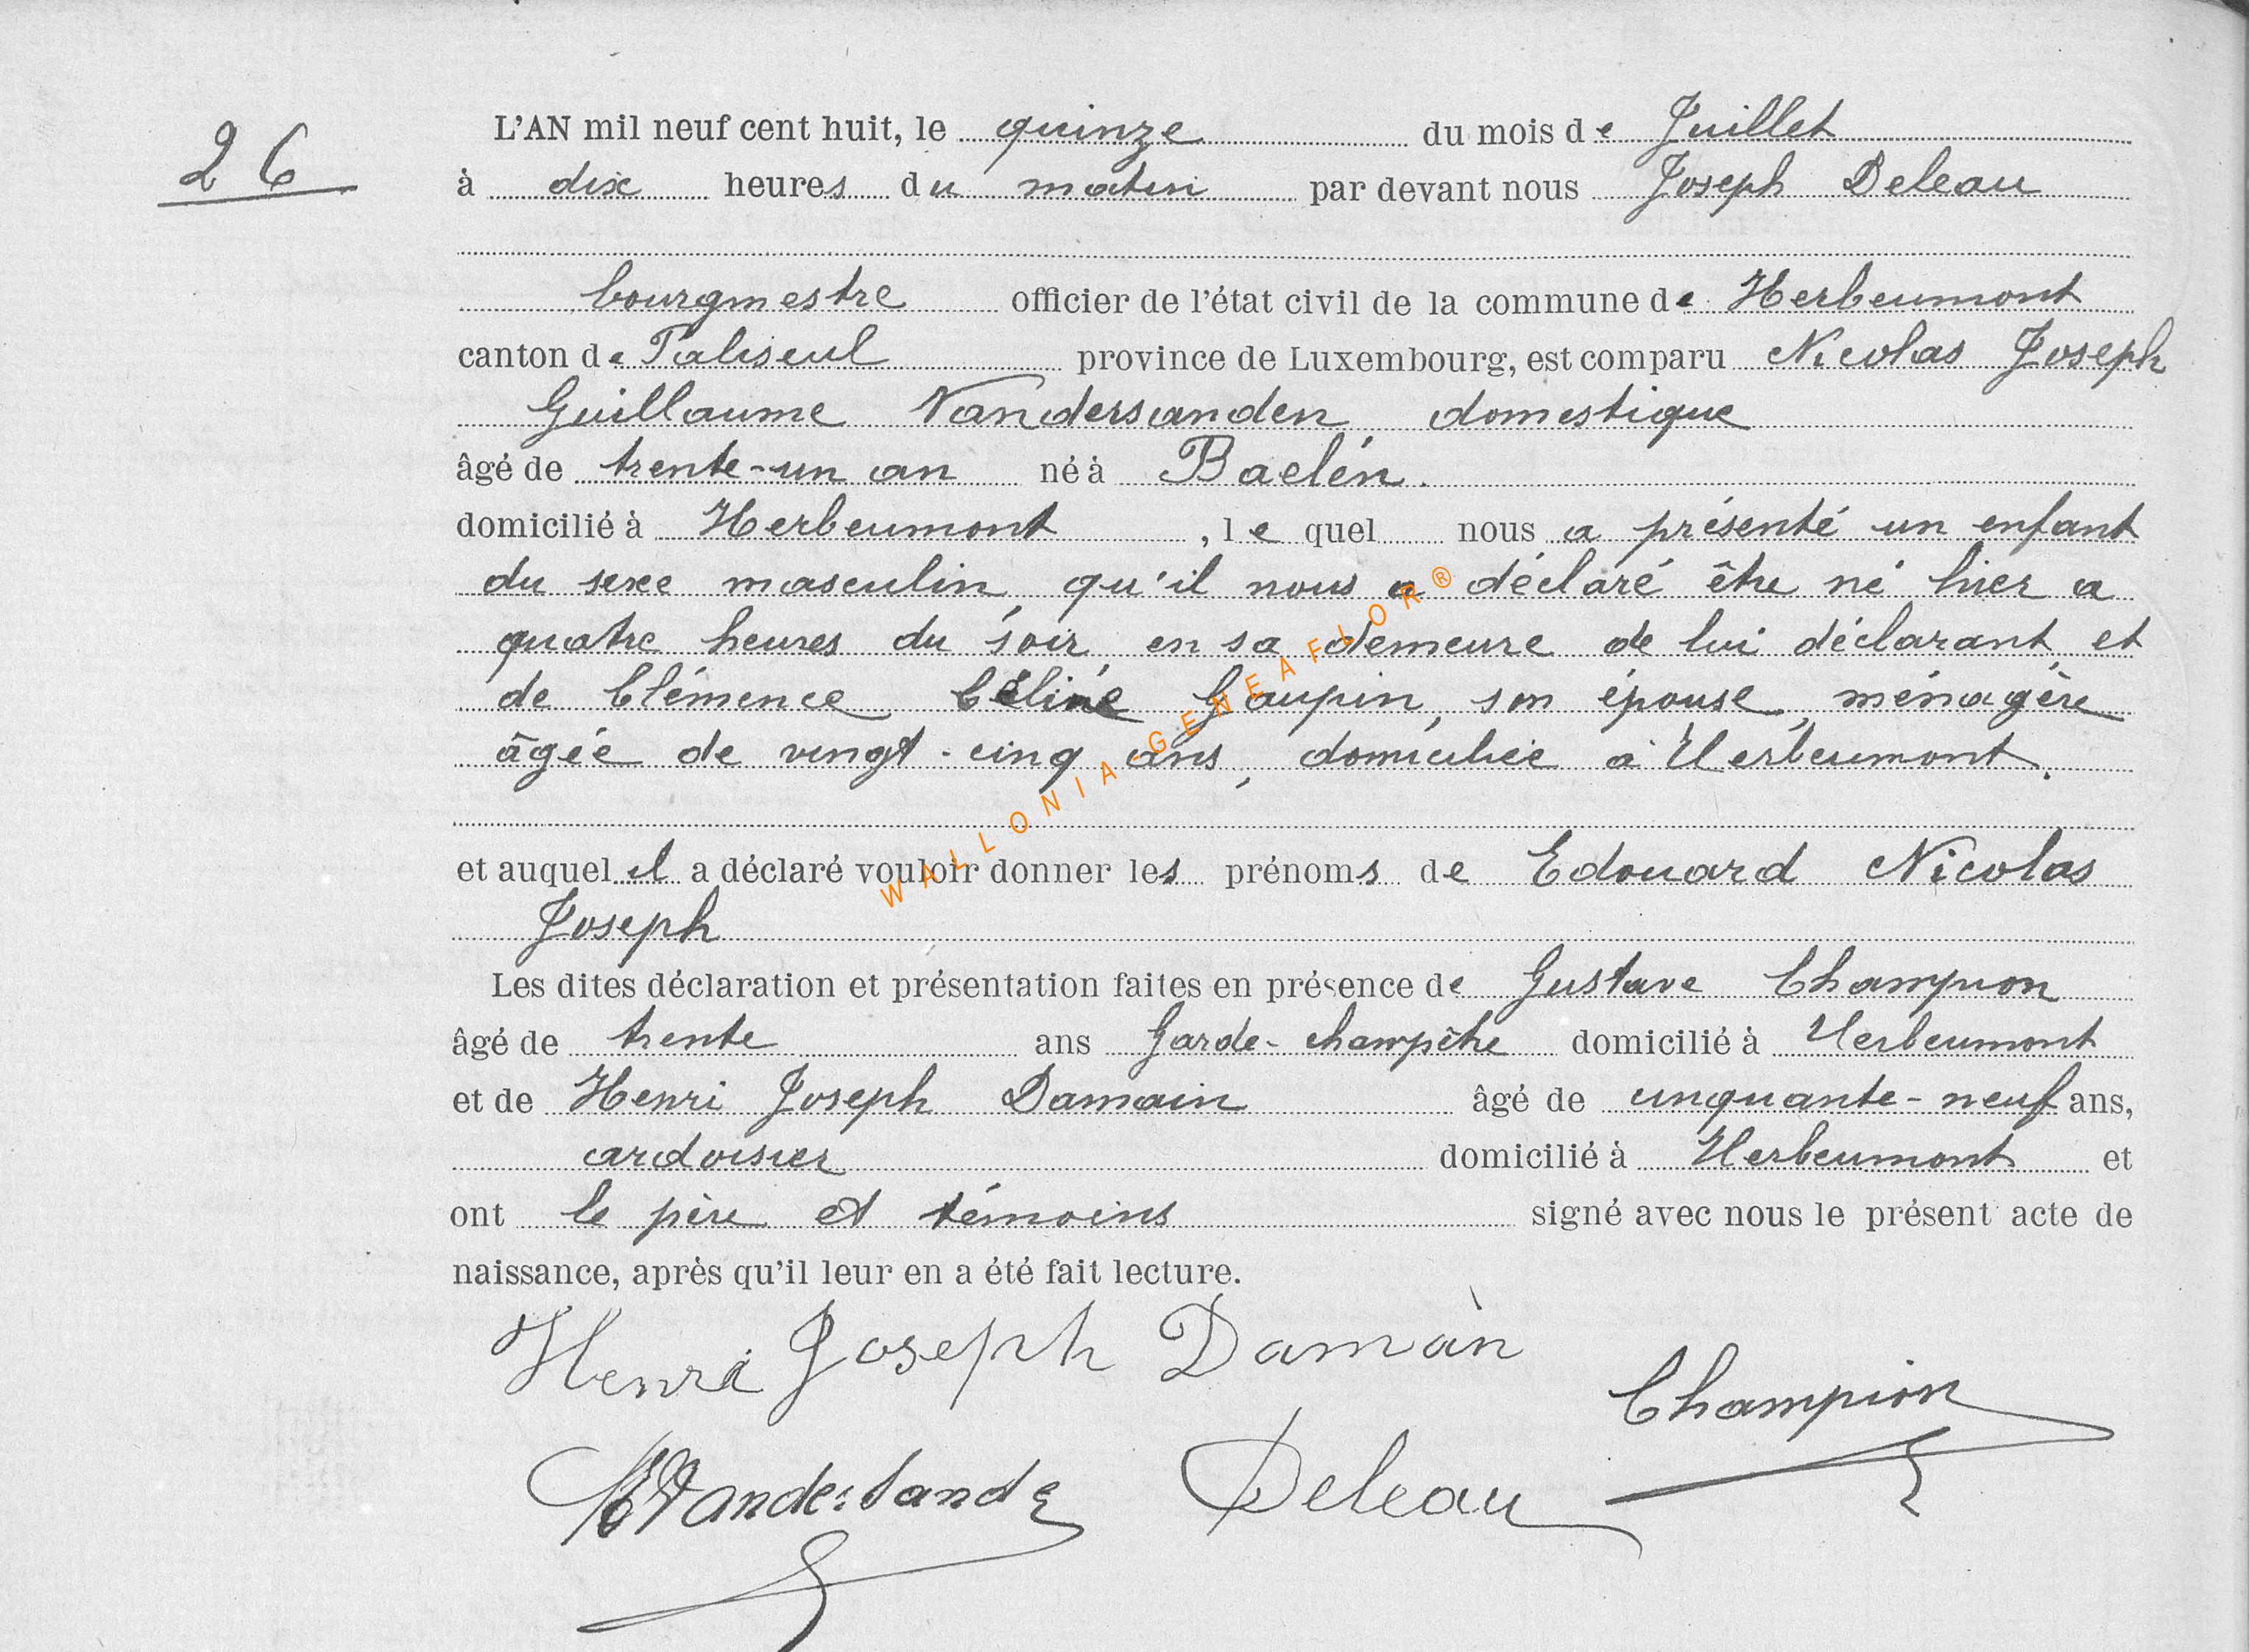 26
L'AN mil neuf cent huit, le quinze du mois de Juillet
à dix heures du matin par devant nous Joseph Deleau
bourgmestre officier de l'état civil de la commune de Herbeumont
canton de Paliseul province de Luxembourg, est comparu Nicolas Joseph
Guillaume Vandersanden domestique
âgé de trente-un an né à Baelén.
domicilié à Herbeumont, le quel nous a présenté un enfant
du sexe masculin, qu'il nous a déclaré être né hier a
quatre heures du soir, en sa demeure de lui déclarant, et
de Clémence Céline Gaupin, son épouse, ménagère
âgée de vingt-cinq ans, domiciliée à Herbeumont.
et auquel il a déclaré vouloir donner les prénoms de Edouard Nicolas
Joseph
Les dites déclaration et présentation faites en présence de Gustave Champion
âgé de trente ans Garde-champêtre domicilié à Herbeumont
et de Henri Joseph Damain âgé de cinquante-neuf ans,
ardoisier domicilié à Herbeumont et
ont le père et témoins signé avec nous le présent acte de
naissance, après qu'il leur en a été fait lecture.
Henri Joseph Damain
Champion
Deleau
WALLONIA-GENEAFLOR®